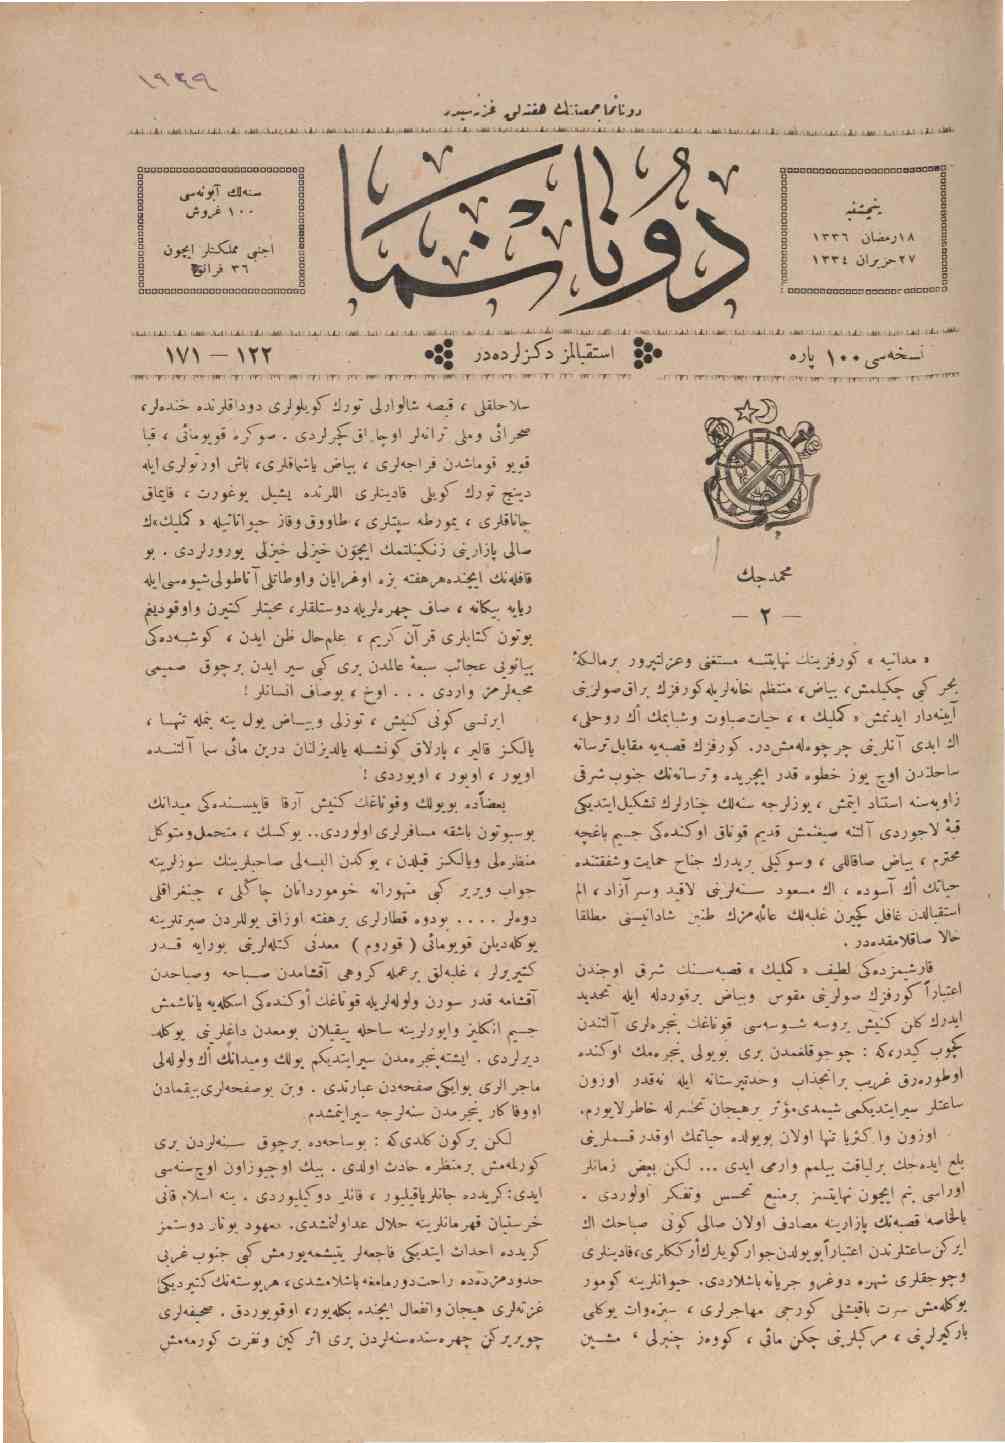 ١٩٣٩
دونانما جمعيتنك هفته لق غزته سيدر
پنجشنبه
١٨ رمضان ١٣٣٦
٢٧ حزيران ١٣٣٤
دونانما
سنه لك آبونه سى
١٠٠ غروش
اجنبى مملكتلر ايچون
٣٦ فرانق
نسخه سى ١٠٠ پاره
استقبالمز دكزلرده در
١٢٢ — ١٧١
محمدجك
— ٢ —
« مدانيه » كورفزينك نهايتنده مستغنى وعزلتپرور برمالكانه
بحر كبى چكيلمش، بياض، منتظم خانه لريله كورفزك براق صولرينى
آيينه دار ايدنمش « كمليك » ، حيات صباوت وشبابمك اك روحلى،
اك ابدى آنلرينى چرچوه له مش در. كورفزك قصبه يه مقابل ترسانه
ساحلندن اوچ يوز خطوه قدر ايچريده وترسانه نك جنوب شرقى
زاويه سنه استناد ايتمش ، يوزلرجه سنه لك چنارلرك تشكيل ايتديكى
قبهٔ لاجوردى آلتنه صيغنمش قديم قوناق اوكنده كى جسيم باغچه
محترم ، بياض صاقاللى ، وسوكيلى بر پدرك جناح حمايت وشفقتنده
حياتك اك آسوده ، اك مسعود سنه لرينى لاقيد وسر آزاد ، الم
استقبالدن غافل كچيرن غلبه لك عائله مزك طنين شادانيسنى مطلقا
حالا صاقلامقده در .
قارشيمزده كى لطيف « كمليك » قصبه سنك شرق اوجندن
اعتباراً كورفزك صولرينى مقوس وبياض برقوردله ايله تحديد
ايدرك كلن كنيش بروسه شوسه سى قوناغك پنجره لرى آلتندن
كچوب كيدر،كه : چوجوقلغمدن برى بويولى پنجره مك اوكنده
اوطوره رق غريب برانجذاب وحدتپرستانه ايله نه قدر اوزون
ساعتلر سير ايتديكمى شيمدى مؤثر برهيجان تحسر له خاطرلايورم.
اوزون واكثريا تنها اولان بويولده حياتمك اوقدر قسملرينى
بلع ايده جك بر لياقت بيلمم وارمى ايدى ... لكن بعض زمانلر
اوراسى بنم ايچون نهايتسز برمنبع تحسس وتفكر اولوردى .
بالخاصه قصبه نك پازارينه مصادف اولان صالى كونى صباحك اك
ايركن ساعتلرندن اعتباراً بويولدن جوار كويلرك أرككلرى، قادينلرى
وچوجقلرى شهره دوغرو جريانه باشلاردى. حيوانلرينه كومور
يوكله مش سرت باقيشلى كورجى مهاجرلرى ، سبزه وات يوكلى
باركيرلرينى ، مركبلرينى چكن مائى ، كووه ز چنبرلى ، مشين
سلاحلقلى ، قيصه شالوارلى تورك كويلولرى دوداقلرنده خنده لر،
صحرائى وملى ترانه لر اوچاراق كچرلردى . صوكره قويومائى ، قبا
قويو قوماشدن فراجه لرى ، بياض ياشماقلرى، باش اورتولرى ايله
دينج تورك كويلى قادينلرى اللرنده يشيل يوغورت ، قايماق
چاناقلرى ، يمورطه سپتلرى ، طاووق وقاز حيواناتيله « كمليك»ك
صالى پازارينى زنكينلتمك ايچون خيزلى خيزلى يورورلردى . بو
قافله نك ايچنده هر هفته بزه اوغرايان واوطاتلى آناطولى شيوه سى ايله
ريايه بيكانه ، صاف چهره لريله دوستلقلر، محبتلر كتيرن واوقوديغم
بوتون كتابلرى قرآن كريم ، علم حال ظن ايدن ، كوشه ده كى
پيانويى عجائب سبعهٔ عالمدن برى كبى سير ايدن برچوق صميمى
محبه لرمز واردى ... اوخ ، بوصاف انسانلر !
ايرتسى كونى كنيش ، توزلى وبياض يول ينه بنمله تنها ،
يالكز قالير ، پارلاق كونشله يالديزلنان درين مائى سما آلتنده
اويور ، اويور ، اويوردى !
بعضاً ده بويولك وقوناغك كنيش آرقا قاپيسنده كى ميدانك
بوسبوتون باشقه مسافرلرى اولوردى.. يوكسك ، متحمل ومتوكل
منظره لى ويالكز قيلدن ، يوكدن البسه لى صاحبلرينك سوزلرينه
جواب ويرير كبى متهورانه خومورداندان چاكلى ، چنغراقلى
دوه لر .... بودوه قطارلرى برهفته اوزاق يوللردن صيرتلرينه
يوكله ديلن قويومائى ( قوروم ) معدنى كتله لرينى بورايه قدر
كتيريرلر ، غلبه لق برعمله كروهى آقشامدن صباحه وصباحدن
آقشامه قدر سورن ولوله لريله قوناغك اوكنده كى اسكله يه ياناشمش
جسيم انكليز واپورلرينه ساحله ييقيلان بومعدن داغلرينى يوكله
ديرلردى . ايشته پنجره مدن سير ايتديكم يولك وميدانك اك ولوله لى
ماجرالرى بوايكى صفحه دن عبارتدى . وبن بوصفحه لرى بيقمادن
اووفاكار پنجره مدن سنه لرجه سير ايتمشدم
لكن بر كون كلدى كه : بوساحه ده برچوق سنه لردن برى
كورلمه مش برمنظره حادث اولدى . بيك اوچيوز اون اوچ سنه سى
ايدى: كريدده جانلر ياقيليور ، قانلر دوكيليوردى . ينه اسلام قانى
خرستيان قهرمانلرينه حلال عد اولنمشدى. معهود يونان دوستمز
كريدده احداث ايتديكى فاجعه لر يتيشمه يورمش كبى جنوب غربى
حدودمزده ده راحت دورمامغه باشلامشدى، هر پوسته نك كتيرديكى
غزته لرى هيجان وانفعال ايچنده بكله يور، اوقويوردق . صحيفه لرى
چويريركن چهره سنده سنه لردن برى اثر كين ونفرت كورمه مش